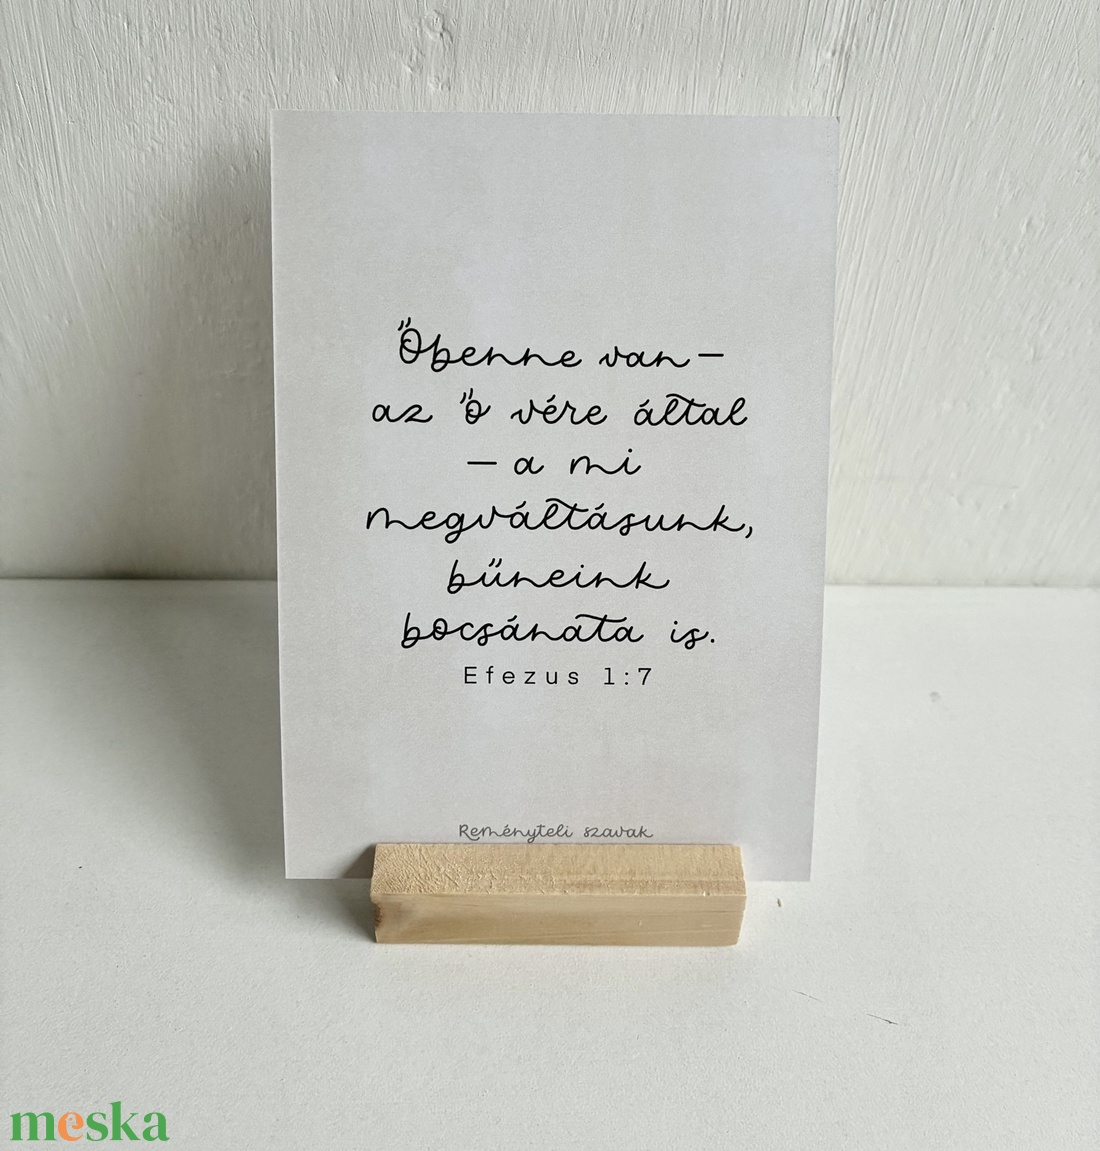 Őbenne van –
az Ő vére által
– a mi
megváltásunk,
bűneink
bocsánata is.
Efezus 1:7
Reményteli szavak
meska